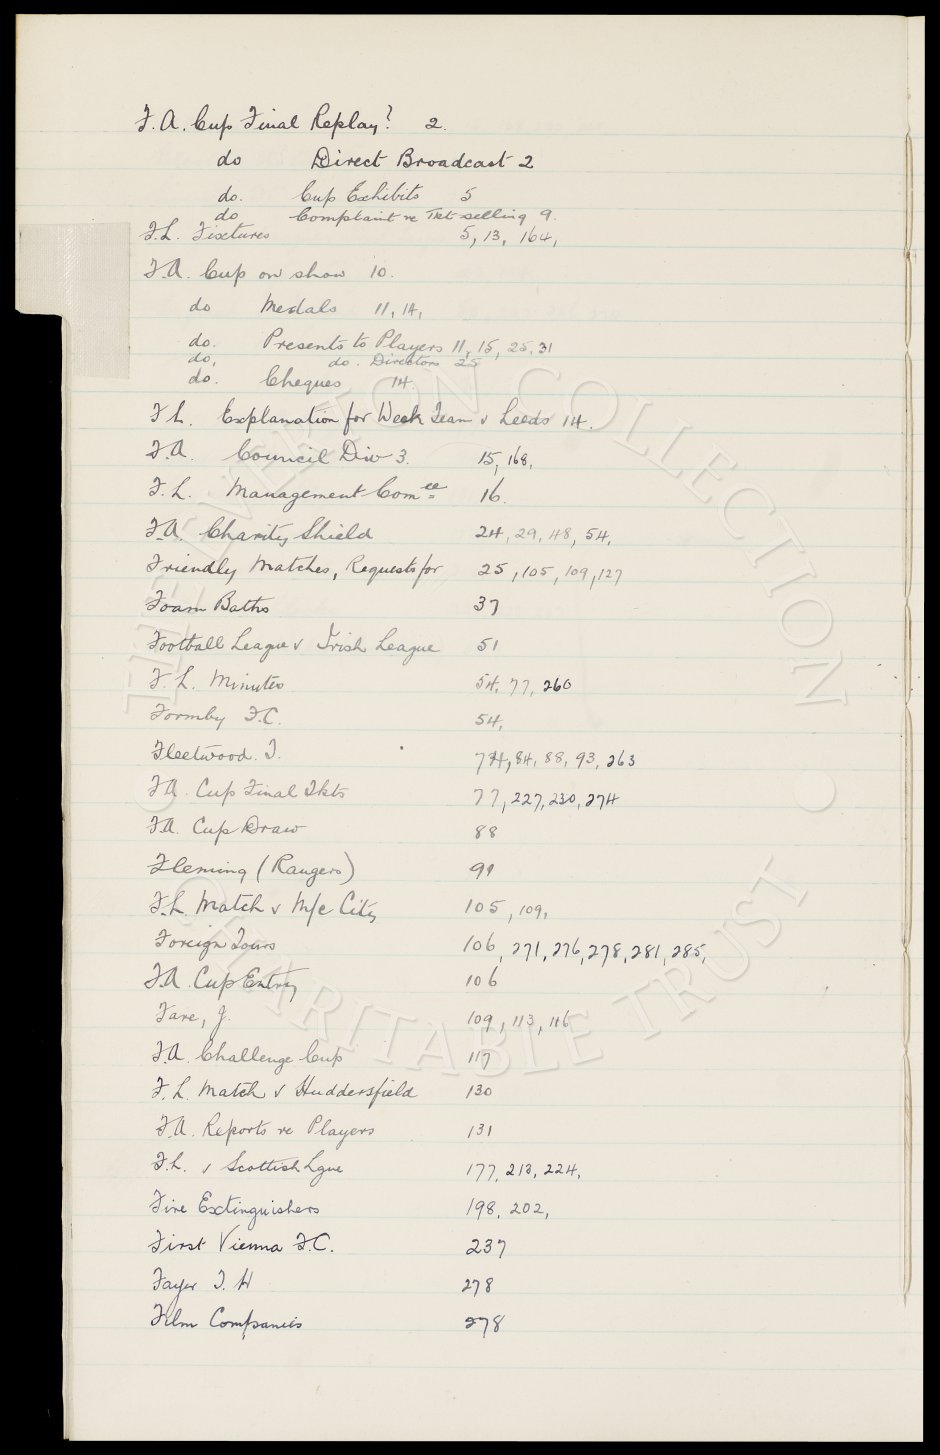 F.A. Cup Final Replay? 2.
do Direct Broadcast 2
do. Cup Exhibits 5
do Complaint re Tkt selling 9.
F.L. Fixtures 5, 13, 164,
F.A. Cup on show 10.
do Medals 11, 14,
do. Presents to Players 11, 15, 25, 31
do, do. Directors 25
do. Cheques 14.
F L. Explanation for Weak Team v Leeds 14.
F.A. Council Div 3. 15, 168,
F. L. Management Comee 16.
F.A. Charity Shield 24, 29, 48, 54,
Friendly Matches, Requests for 25, 105, 109, 127
Foam Baths 37
Football League v Irish League 51
F. L. Minutes 54, 77, 260
Formby F.C. 54,
Fleetwood. T. 74, 84, 88, 93, 263
F.A. Cup Final Tkts 77, 227, 230, 274
F.A. Cup Draw 88
Fleming (Rangers) 91
F.L. Match v M/c City 105, 109,
Foreign Tours 106, 271, 276, 278, 281, 285,
F.A. Cup Entry 106
Fare, J. 109, 113, 116
F.A. Challenge Cup 117
F. L. Match v Huddersfield 130
F.A. Reports re Players 131
F.L. v Scottish Lgue 177, 213, 224,
Fire Extinguishers 198, 202,
First Vienna F.C. 237
Fayer T. H 278
Film Companies 278
THE EVERTON COLLECTION
CHARITABLE TRUST